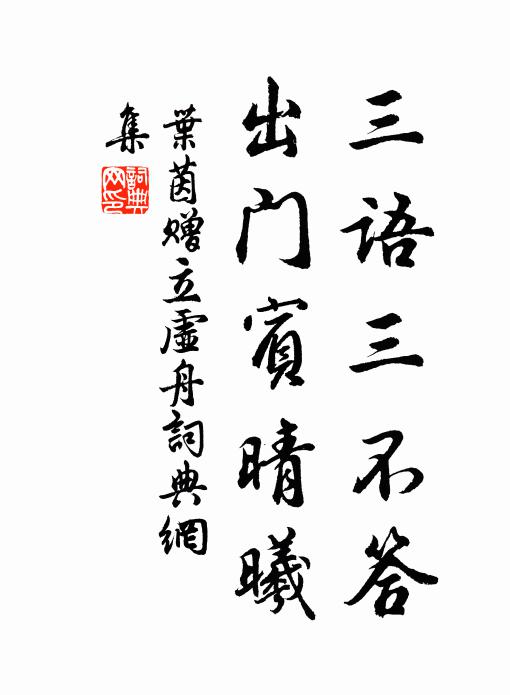 三语三不答
出门賓晴曦
葉茵赠立虛舟詞典網
集
詞典网印